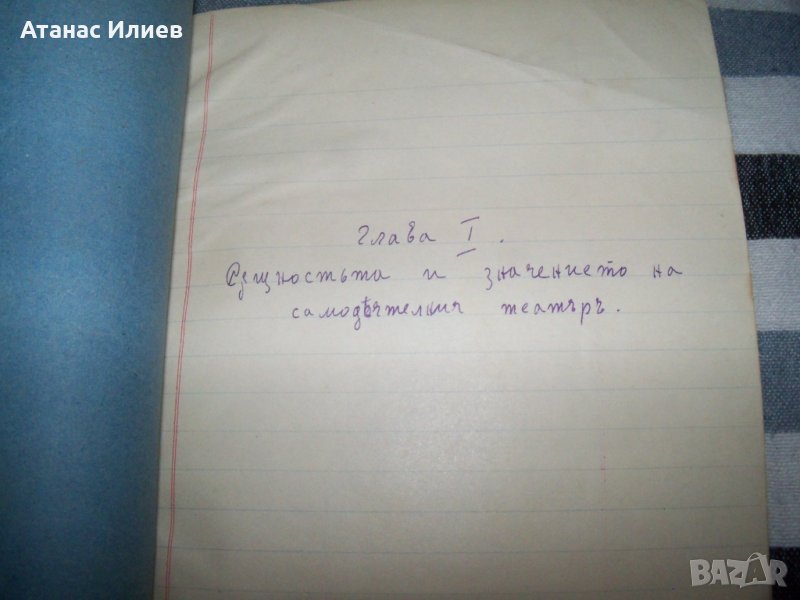 Атанас Илиев
Глава I.
Същностьта и значението на
самодѣятелния театъръ.
BAZAR